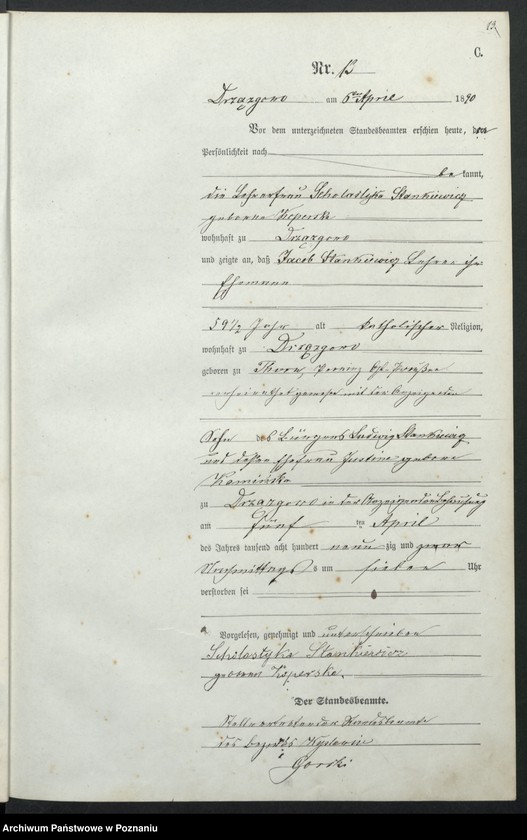 13.
C.
Nr. 13
Drzązgowo am 6ten April 1890
Vor dem unterzeichneten Standesbeamten erschien heute, der
Persönlichkeit nach
be kannt,
die Lehrerfrau Scholastyka Stankiewicz
geborene Koperska
wohnhaft zu Drzązgowo
und zeigte an, daß Jacob Stankiewicz Lehrer ihr
Ehemann
59 1/2 Jahr alt katholischer Religion,
wohnhaft zu Drzązgowo
geboren zu Thorn, Provinz Preußen
verheirathet gewesen mit der Anzeigenden
Sohn des Bürgers Ludwig Stankiewicz
und dessen Ehefrau Justine geborene
Kamińska
zu Drzązgowo in der Anzeigenden Behausung
am fünf ten April
des Jahres tausend acht hundert neun zig und
Nachmittags um sieben Uhr
verstorben sei
Vorgelesen, genehmigt und unterschrieben
Scholastyka Stankiewicz
geborene Koperska.
Der Standesbeamte.
Stellvertretender Standesbeamte
des Bezirks
Gorski
Archiwum Państwowe w Poznaniu